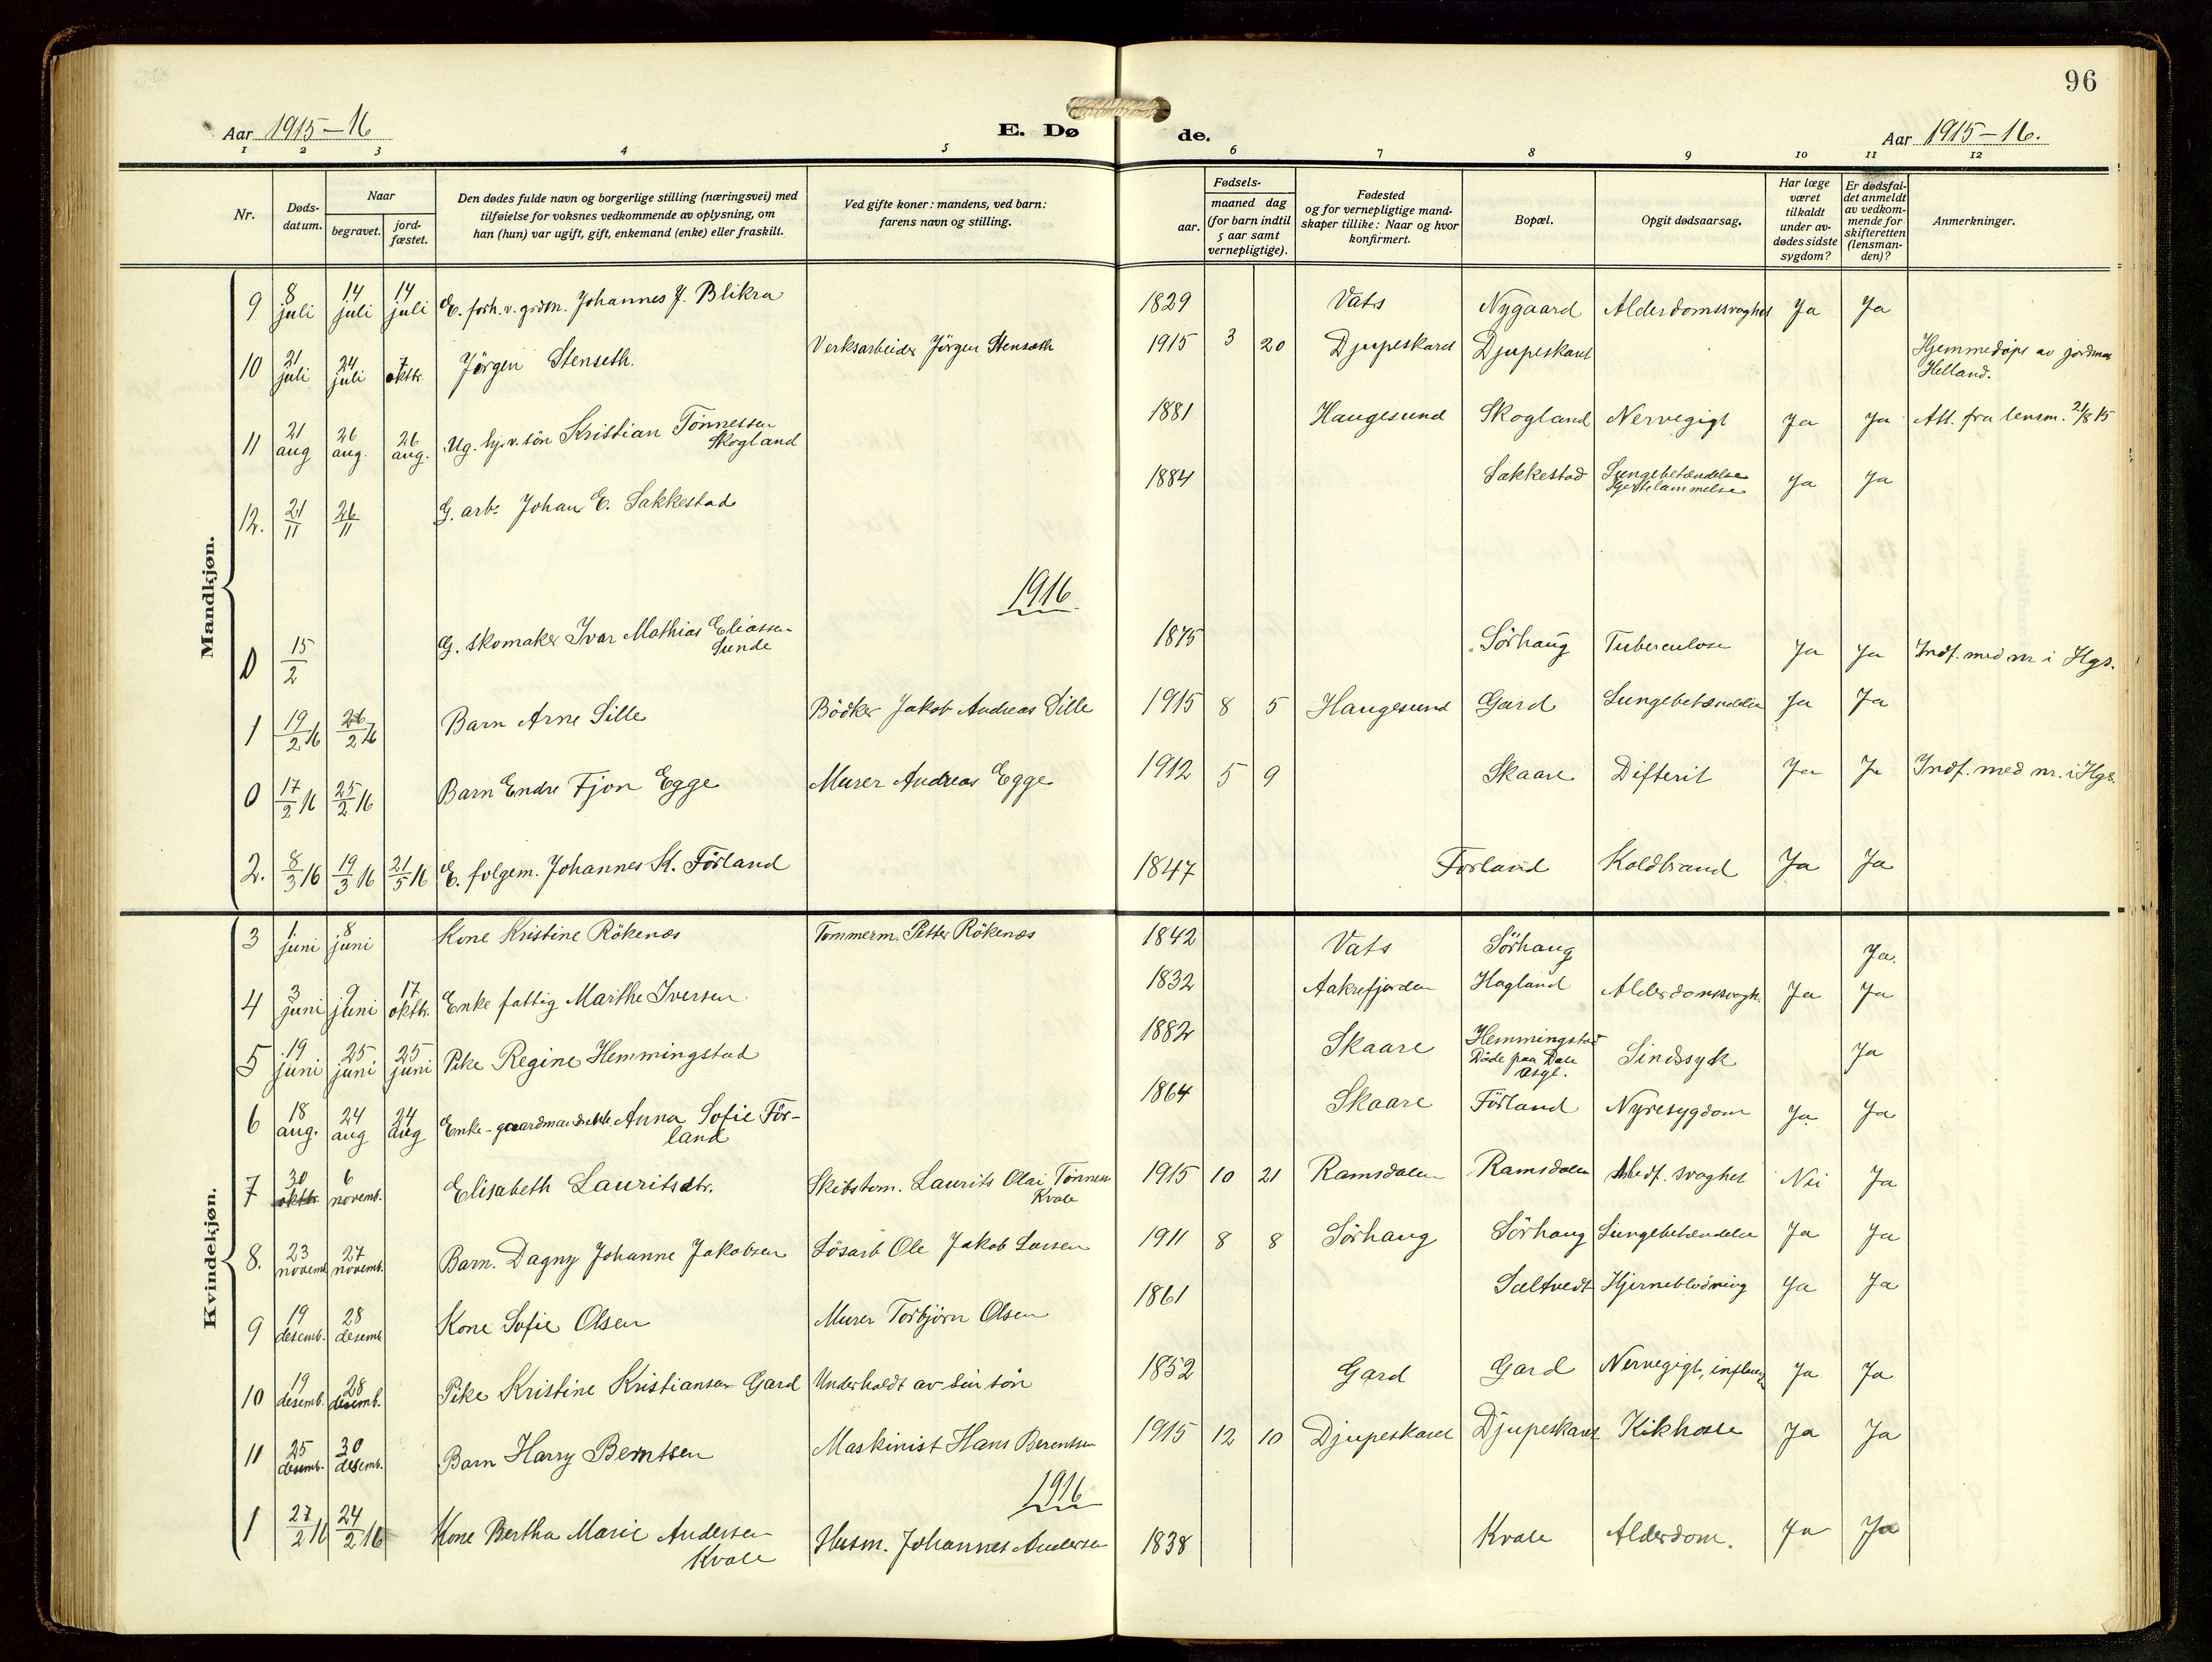 96
Aar 1915-16
E. Dø de.
Aar 1915-16.
1 2 3 4 5 6 7 8 9 10 11 12
Nr.
Døds-
datum.
Naar
begravet.
jord-
fæstet.
Den dødes fulde navn og borgerlige stilling (næringsvei) med
tilføielse for voksnes vedkommende av oplysning, om
han (hun) var ugift, gift, enkemand (enke) eller fraskilt.
Ved gifte koner: mandens, ved barn:
farens navn og stilling.
Fødsels-
aar.
maaned dag
(for barn indtil
5 aar samt
vernepligtige).
Fødested
og for vernepligtige mand-
skaper tillike: Naar og hvor
konfirmert.
Bopæl.
Opgit dødsaarsag.
Har læge
været
tilkaldt
under av-
dødes sidste
sygdom?
Er dødsfal-
det anmeldt
av vedkom-
mende for
skifteretten
(lensman-
den)?
Anmerkninger.
Mandkjøn.
9 8 juli 14 juli 14 juli E. forh. v. grdm. Johannes J. Blikra 1829 Vats Nygaard Alderdomssvaghet Ja Ja
10 21 juli 24 juli 7 oktbr. Jørgen Stenseth. Verksarbeider Jörgen Stenseth 1915 3 20 Djupeskard Djupeskard Hjemmedöpt av jordmor
Helland.
11 21 aug 26 aug. 26 aug. Ug. hj. v. sön Kristian Tönnessen
Skogland 1881 Haugesund Skogland Nervegigt Ja Ja Att. fra lensm. 21/8 15
12. 21/11 26/11 G. arb. Johan E. Sakkestad 1884 Sakkestad Lungebetændelse
Hjertelammelse Ja Ja
1916
0 15/2 G. skomaker Ivar Mathias Eliassen
Sunde 1875 Sörhaug Tuberculose Ja Ja Indf. med nr i Hgs.
1 19/2 16 26/2 16 Barn Arne Sille Bödker Jakob Andreas Sille 1915 8 5 Haugesund Gard Lungebetændelse Ja Ja
0 17/2 16 25/2 16 Barn Endre Fjon Egge Murer Andreas Egge 1912 5 9 Skaare Difterit Ja Ja Indf. med nr. i Hgs.
2. 8/3 16 19/3 16 21/5 16 E. folgem. Johannes K. Förland 1847 Förland Koldbrand Ja Ja
Kvindekjøn.
3 1 juni 8 juni Kone Kristine Rökenæs Tommerm. Petter Rökenæs 1842 Vats Sörhaug Ja.
4 3 juni 9 juni 17 oktbr. Enke fattig Marthe Iversen 1832 Aakrefjorden Hagland Alderdomssvagh. Ja Ja
5 19 juni 25 juni 25 juni Pike Regine Hemmingstad 1882 Skaare Hemmingstad
Döde paa Dale
Asyl. Sindssyk Ja
6 18 aug. 24 aug 24 aug Enke - gaardmandsenke Anna Sofie För-
land 1864 Skaare Förland Nyresygdom Ja Ja
7 30 oktbr. 6 novemb. Elisabeth Lauritsdtr. Skibstøm. Laurits Olai Tönnesen
Kvale 1915 10 21 Ramsdalen Ramsdalen Medf. svaghet Nei Ja
8. 23 novemb 27 novemb. Barn. Dagny Johanne Jakobsen Lösarb Ole Jakob Larsen 1911 8 8 Sörhaug Sörhaug Lungebetændelse Ja Ja
9 19 desemb. 28 desemb Kone Sofie Olsen Murer Torbjörn Olsen 1861 Saltvedt Hjerneblödning Ja Ja
10 19 desemb. 28 desemb. Pike Kristine Kristiansen Gard Underholdt av sin sön 1852 Gard Gard Nervegigt, influenza Ja Ja
11 25 desemb. 30 desemb. Barn Harry Berntsen Maskinist Hans Berentsen 1915 12 10 Djupeskard Djupeskard Kikhoste Ja Ja
1916
1 27/2 16 24/2 16 Kone Bertha Marie Andersen
Kvale Husm. Johannes Andersen 1838 Kvale Alderdom. Ja Ja